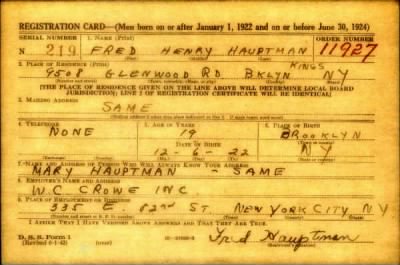 REGISTRATION CARD—(Men born on or after January 1, 1922 and on or before June 30, 1924)
SERIAL NUMBER 1. NAME (Print) ORDER NUMBER
N 219 FRED HENRY HAUPTMAN 11927
2. PLACE OF RESIDENCE (Print) KINGS
9508 GLENWOOD RD BKLYN NY
[THE PLACE OF RESIDENCE GIVEN ON THE LINE ABOVE WILL DETERMINE LOCAL BOARD
JURISDICTION; LINE 2 OF REGISTRATION CERTIFICATE WILL BE IDENTICAL]
3. MAILING ADDRESS
SAME
4. TELEPHONE 5. AGE IN YEARS 6. PLACE OF BIRTH
NONE 19 BROOKLYN
DATE OF BIRTH
12-6-22 NY
7. NAME AND ADDRESS OF PERSON WHO WILL ALWAYS KNOW YOUR ADDRESS
MARY HAUPTMAN - SAME
8. EMPLOYER'S NAME AND ADDRESS
W.C. CROWE INC
9. PLACE OF EMPLOYMENT OR BUSINESS
335 E. 82nd ST NEW YORK CITY NY
I AFFIRM THAT I HAVE VERIFIED ABOVE ANSWERS AND THAT THEY ARE TRUE.
D. S. S. Form 1
(Revised 6-1-42) (over) Fred Hauptman